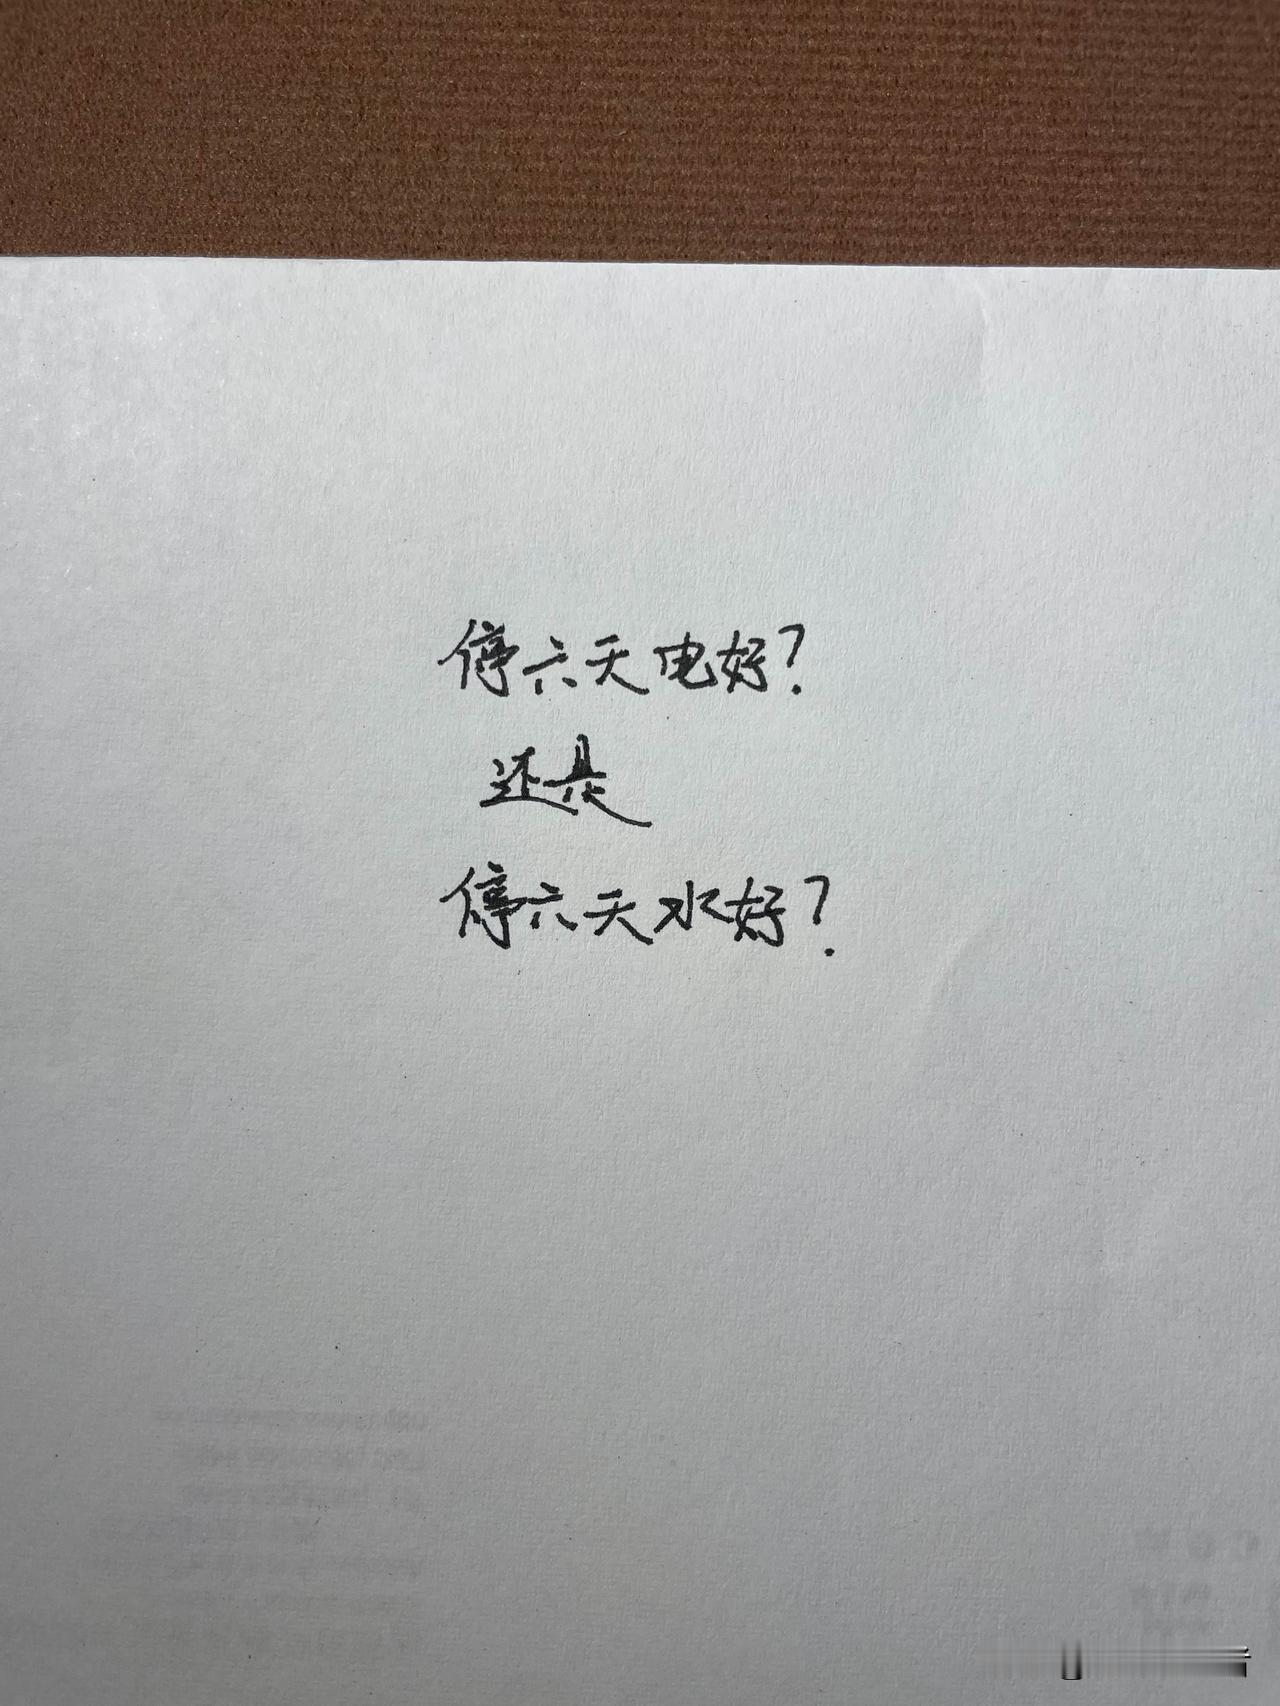 停六天电好?
还是
停六天水好?